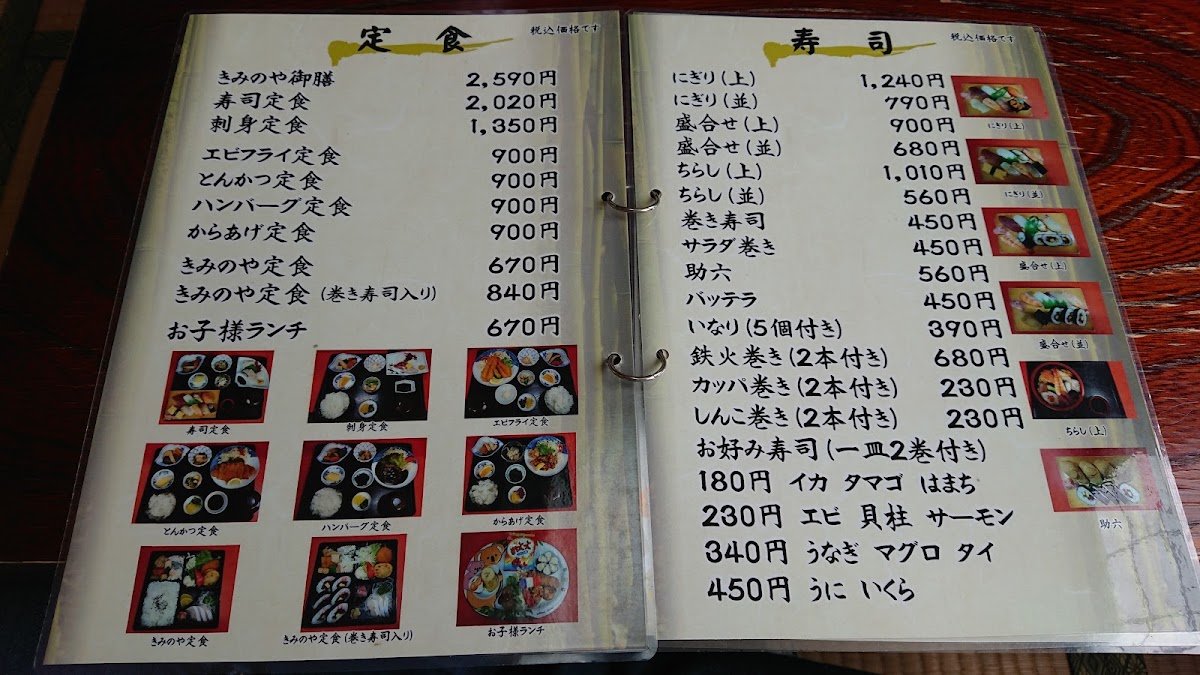 定食
税込価格です
きみのや御膳 2,590円
寿司定食 2,020円
刺身定食 1,350円
エビフライ定食 900円
とんかつ定食 900円
ハンバーグ定食 900円
からあげ定食 900円
きみのや定食 670円
きみのや定食(巻き寿司入り) 840円
お子様ランチ 670円
寿司定食
刺身定食
エビフライ定食
とんかつ定食
ハンバーグ定食
からあげ定食
きみのや定食
きみのや定食(巻き寿司入り)
お子様ランチ
寿司
税込価格です
にぎり(上) 1,240円
にぎり(並) 790円
盛合せ(上) 900円
盛合せ(並) 680円
ちらし(上) 1,010円
ちらし(並) 560円
巻き寿司 450円
サラダ巻き 450円
助六 560円
バッテラ 450円
いなり(5個付き) 390円
鉄火巻き(2本付き) 680円
カッパ巻き(2本付き) 230円
しんこ巻き(2本付き) 230円
お好み寿司(一皿2巻付き)
180円 イカ タマゴ はまち
230円 エビ 貝柱 サーモン
340円 うなぎ マグロ タイ
450円 うに いくら
にぎり(上)
にぎり(並)
盛合せ(上)
盛合せ(並)
ちらし(上)
助六